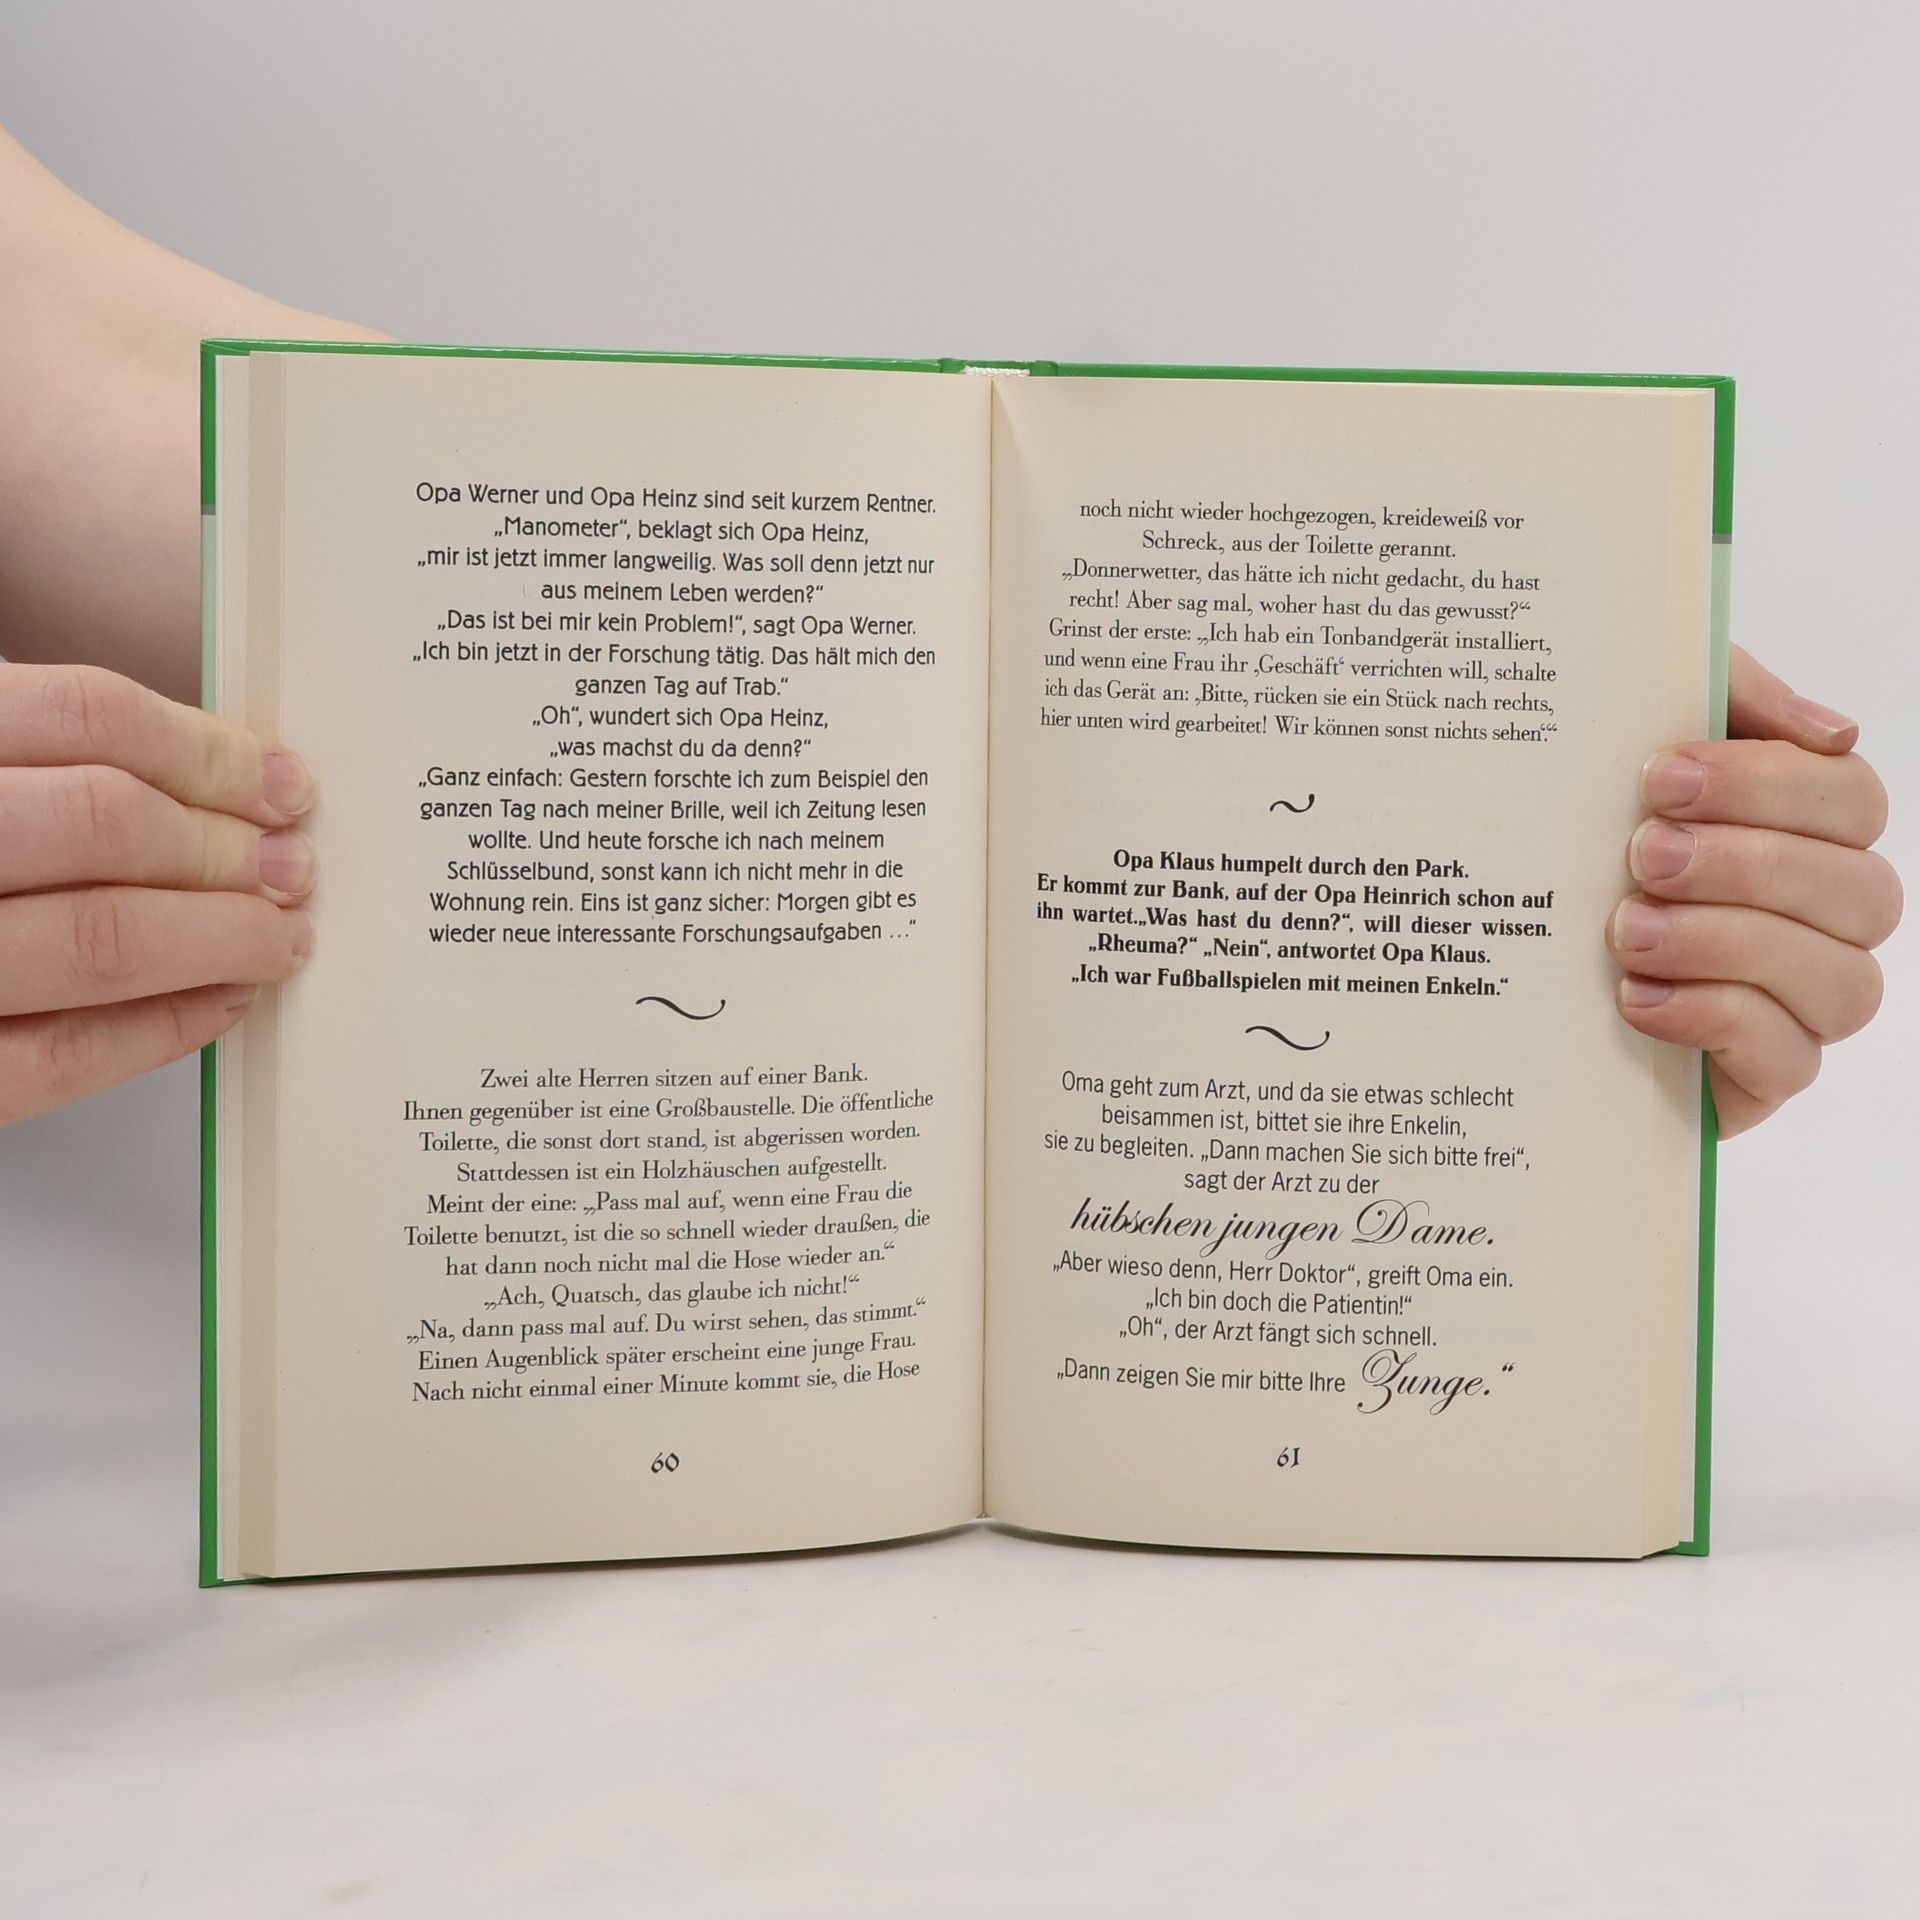 Opa Werner und Opa Heinz sind seit kurzem Rentner.
„Manometer“, beklagt sich Opa Heinz,
„mir ist jetzt immer langweilig. Was soll denn jetzt nur
aus meinem Leben werden?“
„Das ist bei mir kein Problem!“, sagt Opa Werner.
„Ich bin jetzt in der Forschung tätig. Das hält mich den
ganzen Tag auf Trab.“
„Oh“, wundert sich Opa Heinz,
„was machst du da denn?“
„Ganz einfach: Gestern forschte ich zum Beispiel den
ganzen Tag nach meiner Brille, weil ich Zeitung lesen
wollte. Und heute forsche ich nach meinem
Schlüsselbund, sonst kann ich nicht mehr in die
Wohnung rein. Eins ist ganz sicher: Morgen gibt es
wieder neue interessante Forschungsaufgaben …“
Zwei alte Herren sitzen auf einer Bank.
Ihnen gegenüber ist eine Großbaustelle. Die öffentliche
Toilette, die sonst dort stand, ist abgerissen worden.
Stattdessen ist ein Holzhäuschen aufgestellt.
Meint der eine: „Pass mal auf, wenn eine Frau die
Toilette benutzt, ist die so schnell wieder draußen, die
hat dann noch nicht mal die Hose wieder an.“
„Ach, Quatsch, das glaube ich nicht!“
„Na, dann pass mal auf. Du wirst sehen, das stimmt.“
Einen Augenblick später erscheint eine junge Frau.
Nach nicht einmal einer Minute kommt sie, die Hose
60
noch nicht wieder hochgezogen, kreideweiß vor
Schreck, aus der Toilette gerannt.
„Donnerwetter, das hätte ich nicht gedacht, du hast
recht! Aber sag mal, woher hast du das gewusst?“
Grinst der erste: „Ich hab ein Tonbandgerät installiert,
und wenn eine Frau ihr ‚Geschäft‘ verrichten will, schalte
ich das Gerät an: ‚Bitte, rücken sie ein Stück nach rechts,
hier unten wird gearbeitet! Wir können sonst nichts sehen‘.“
Opa Klaus humpelt durch den Park.
Er kommt zur Bank, auf der Opa Heinrich schon auf
ihn wartet.„Was hast du denn?“, will dieser wissen.
„Rheuma?“ „Nein“, antwortet Opa Klaus.
„Ich war Fußballspielen mit meinen Enkeln.“
Oma geht zum Arzt, und da sie etwas schlecht
beisammen ist, bittet sie ihre Enkelin,
sie zu begleiten. „Dann machen Sie sich bitte frei“,
sagt der Arzt zu der
hübschen jungen Dame.
„Aber wieso denn, Herr Doktor“, greift Oma ein.
„Ich bin doch die Patientin!“
„Oh“, der Arzt fängt sich schnell.
„Dann zeigen Sie mir bitte Ihre Zunge.“
61